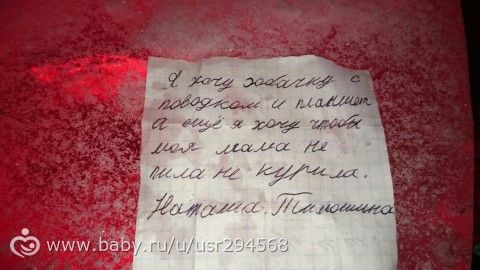 Я хочу хобачку с
поводком и планшет
а ещё я хочу чтобы
моя мама не
пила не курила.
Наташа. Тимошина
www.baby.ru/u/usr294568